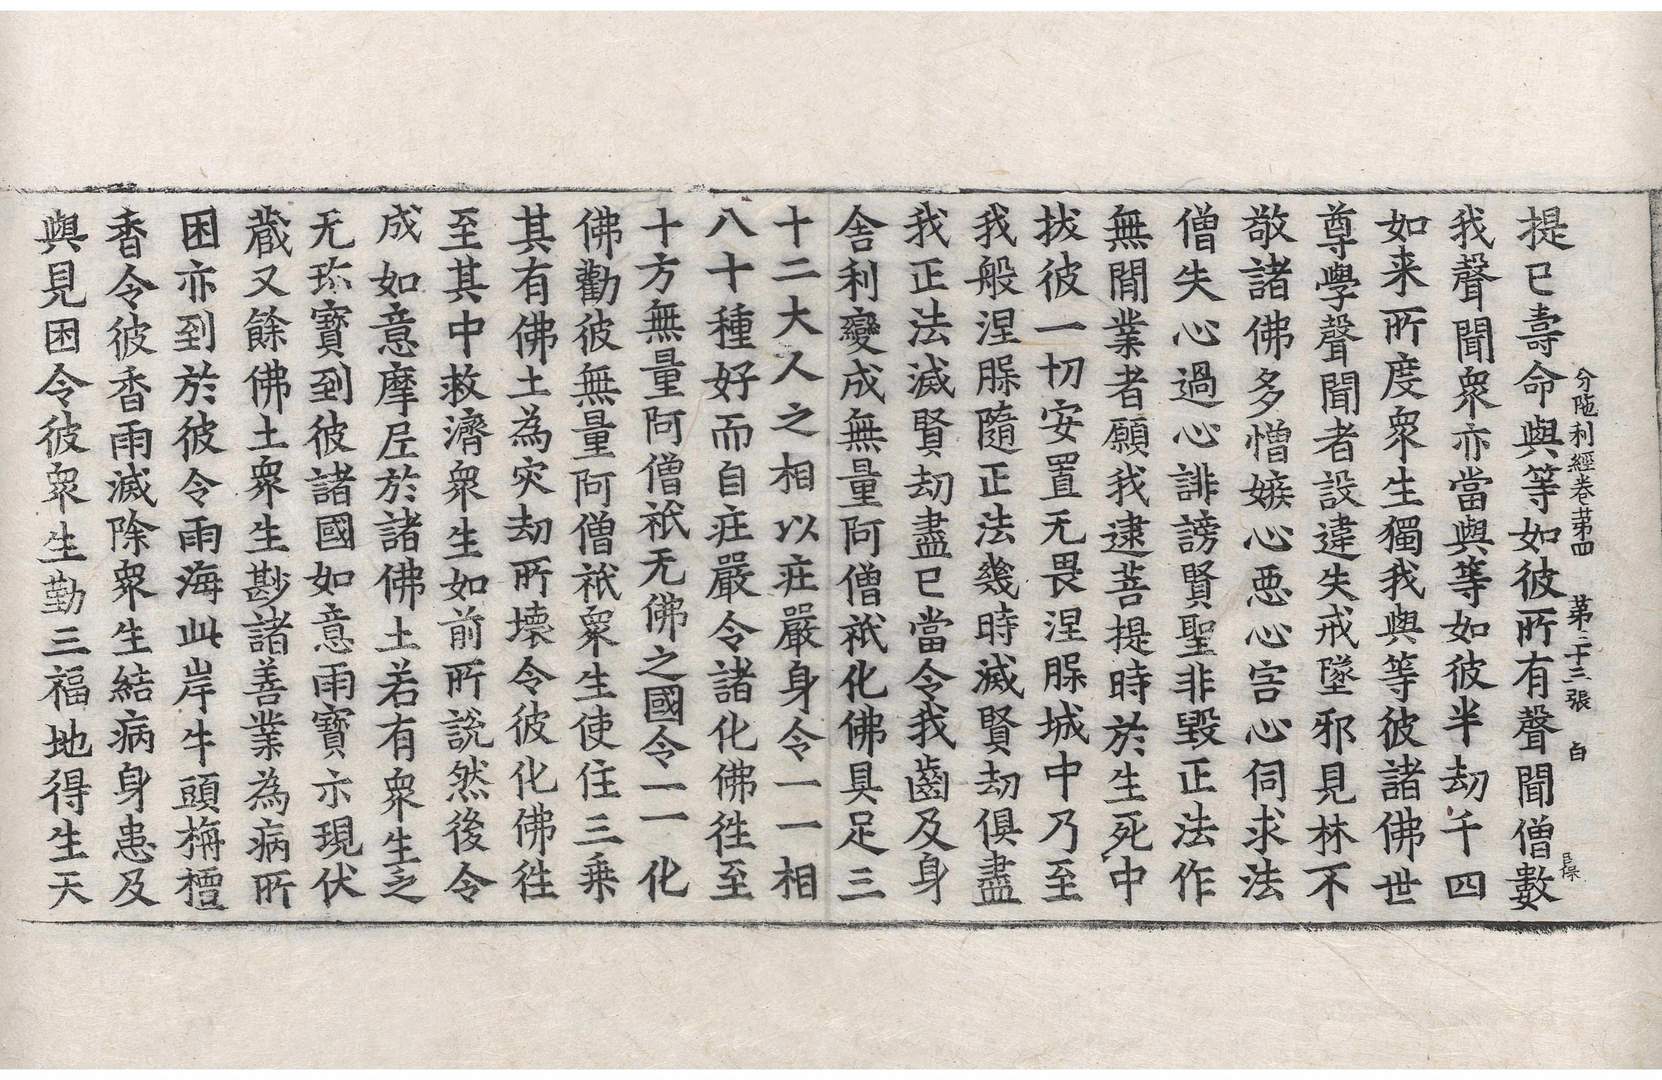 分陁利經卷苐四　苐二十三張　白
提已壽命與等如彼所有聲聞僧數
我聲聞衆亦當與等如彼半劫千四
如来所度衆生獨我與等彼諸佛世
尊學聲聞者設違失戒墜邪見林不
敬諸佛多憎嫉心惡心害心伺求法
僧失心過心誹謗賢聖非毀正法作
無閒業者願我逮菩提時於生死中
拔彼一切安置无畏涅槃城中乃至
我般涅槃隨正法幾時滅賢劫俱盡
我正法滅賢劫盡已當令我齒及身
舍利變成無量阿僧祇化佛具足三
十二大人之相以庄嚴身令一一相
八十種好而自庄嚴令諸化佛徃至
十方無量阿僧祇无佛之國令一一化
佛勸彼無量阿僧祇衆生使住三乗
其有佛土為灾劫所壞令彼化佛徃
至其中救濟衆生如前所說然後令
成如意摩尼於諸佛土若有衆生乏
无珎寶到彼諸國如意雨寶示現伏
藏又餘佛土衆生尠諸善業為病所
困亦到於彼令雨海此岸牛頭栴檀
香令彼香雨滅除衆生結病身患及
與見困令彼衆生勤三福地得生天